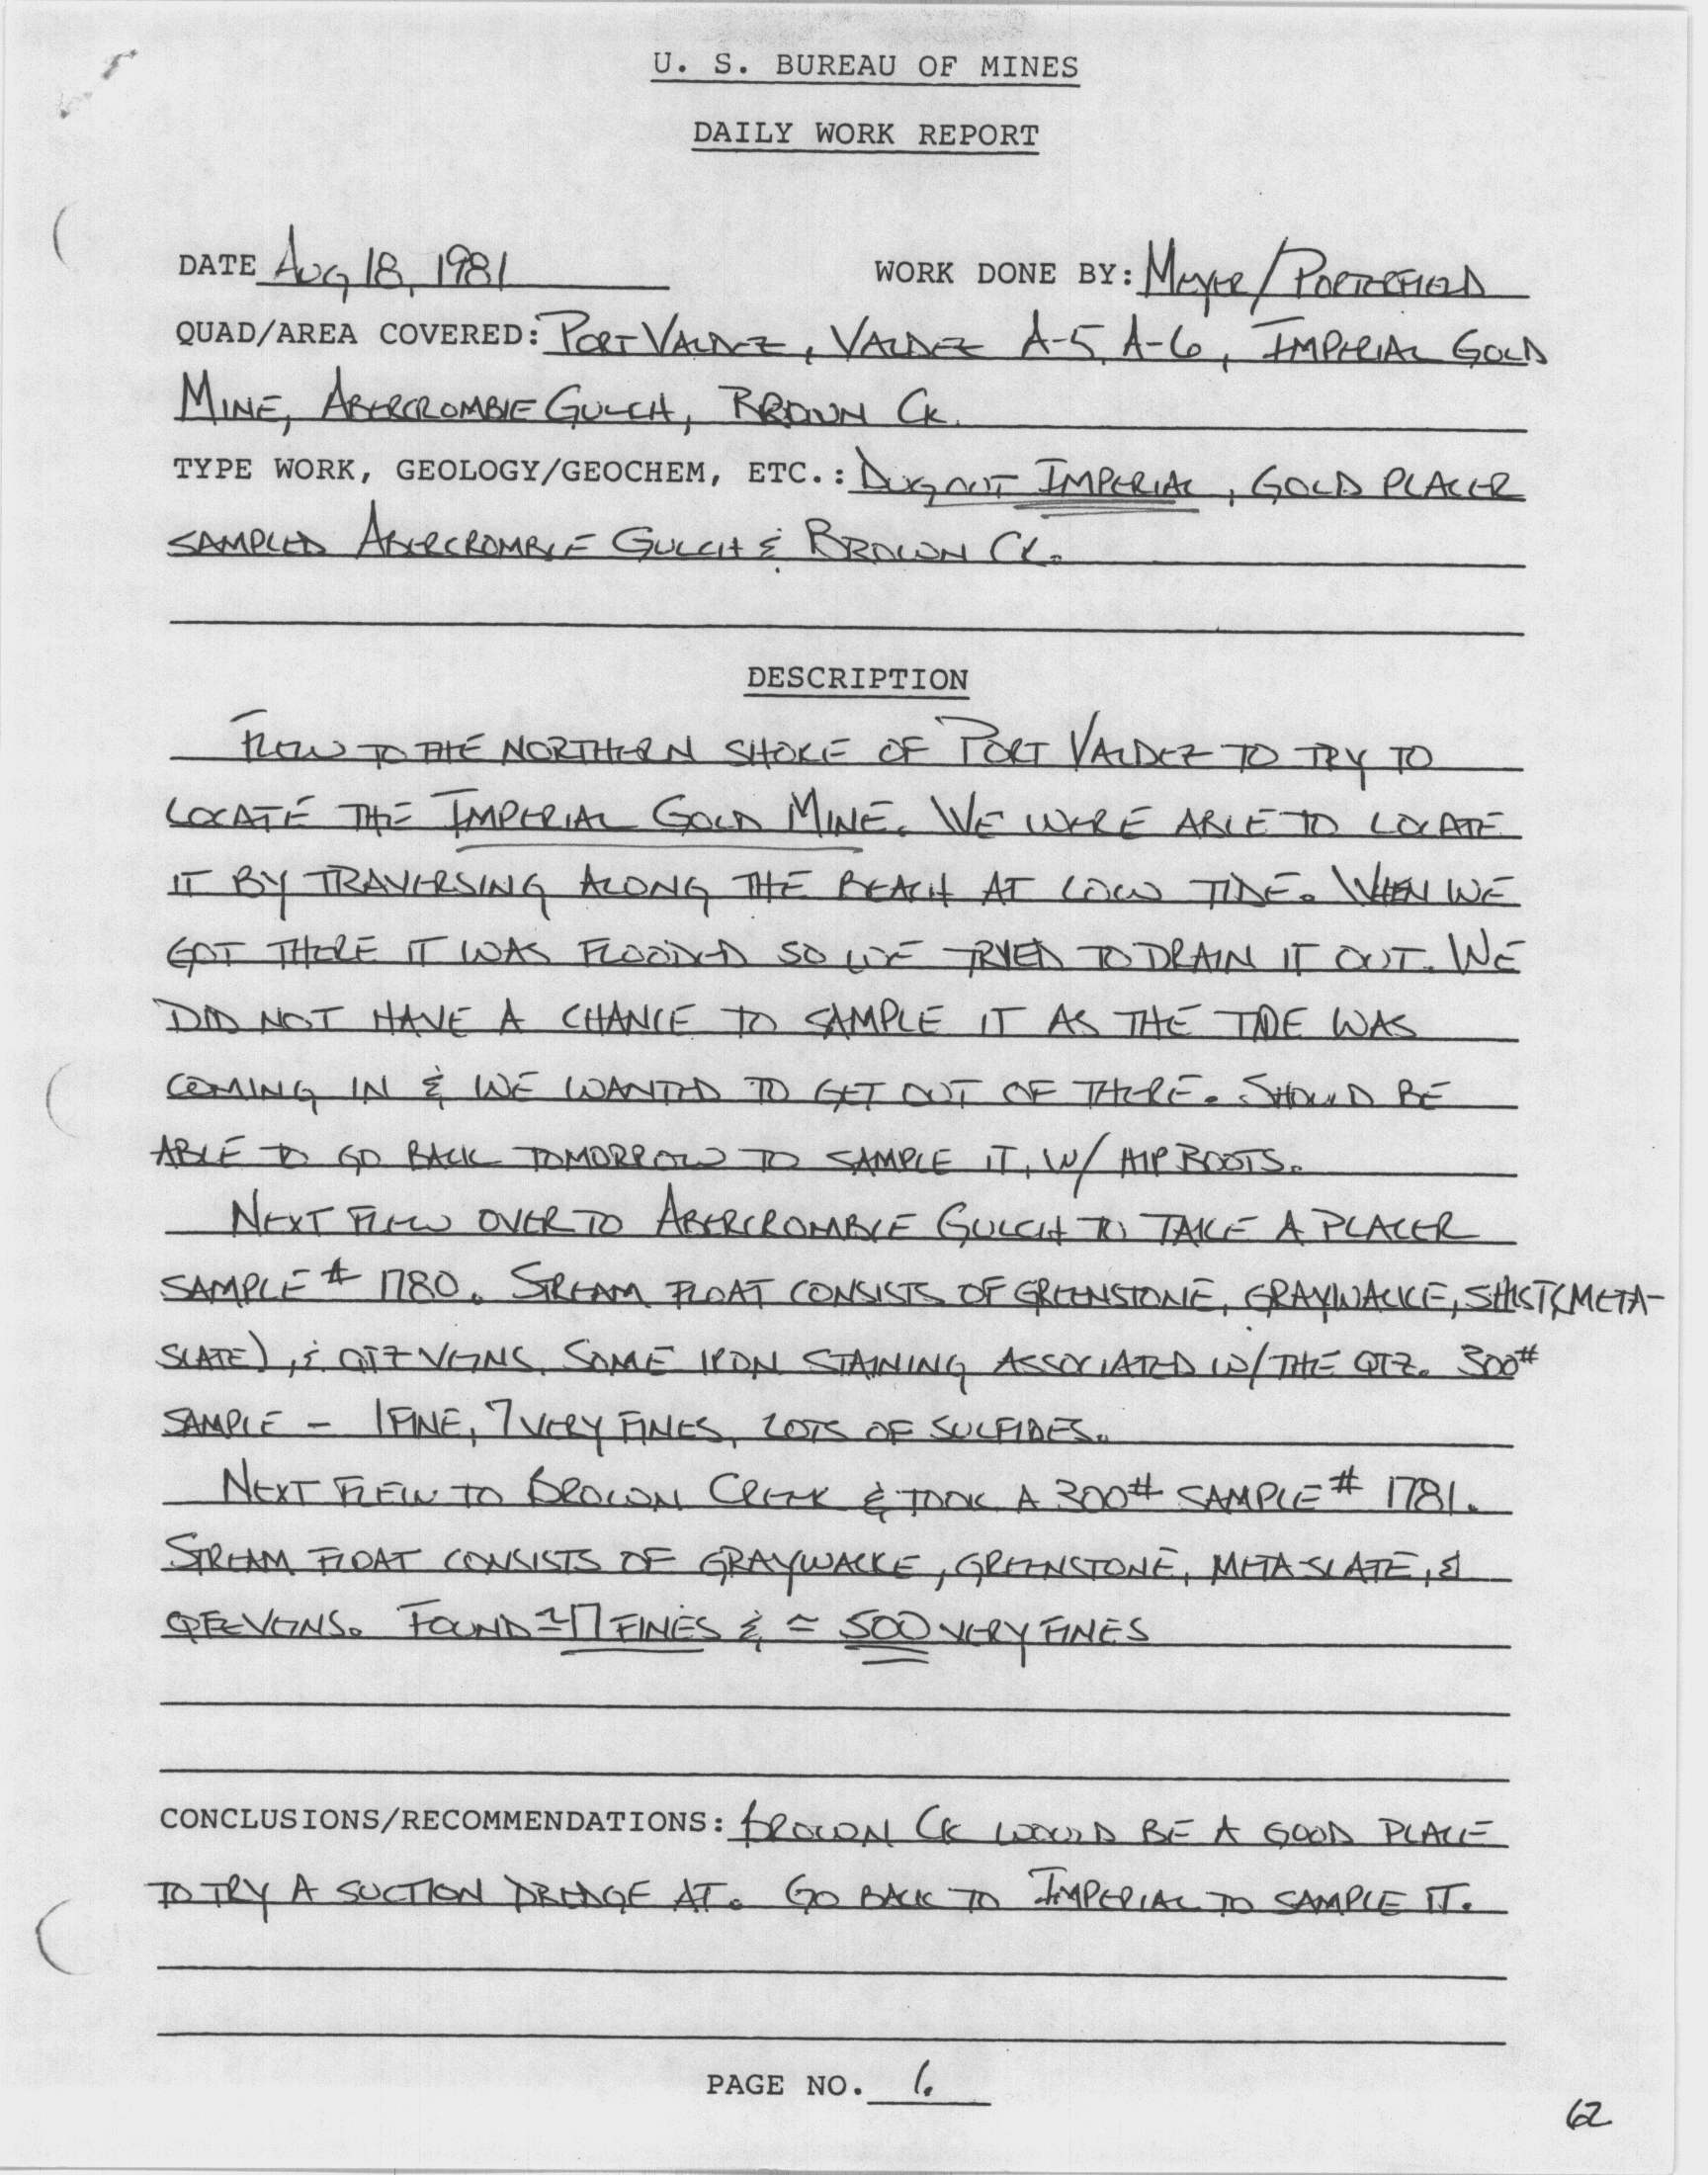 U. S. BUREAU OF MINES
DAILY WORK REPORT
DATE AUG 18, 1981 WORK DONE BY: MEYER/PORTERFIELD
QUAD/AREA COVERED: PORT VALDEZ, VALDEZ A-5, A-6, IMPERIAL GOLD
MINE, ABERCROMBIE GULCH, BROWN CK.
TYPE WORK, GEOLOGY/GEOCHEM, ETC.: DUG OUT IMPERIAL, GOLD PLACER
SAMPLED ABERCROMBIE GULCH & BROWN CK.
DESCRIPTION
FLEW TO THE NORTHERN SHORE OF PORT VALDEZ TO TRY TO
LOCATE THE IMPERIAL GOLD MINE. WE WERE ABLE TO LOCATE
IT BY TRAVERSING ALONG THE BEACH AT LOW TIDE. WHEN WE
GOT THERE IT WAS FLOODED SO WE TRYED TO DRAIN IT OUT. WE
DID NOT HAVE A CHANCE TO SAMPLE IT AS THE TIDE WAS
COMING IN & WE WANTED TO GET OUT OF THERE. SHOULD BE
ABLE TO GO BACK TOMORROW TO SAMPLE IT, W/ HIP BOOTS.
NEXT FLEW OVER TO ABERCROMBIE GULCH TO TAKE A PLACER
SAMPLE # 1780. STREAM FLOAT CONSISTS OF GREENSTONE, GRAYWACKE, SHIST(META-
SLATE), & QTZ VEINS. SOME IRON STAINING ASSOCIATED W/ THE QTZ. 300#
SAMPLE - 1 FINE, 7 VERY FINES, LOTS OF SULFIDES.
NEXT FLEW TO BROWN CREEK & TOOK A 300# SAMPLE # 1781.
STREAM FLOAT CONSISTS OF GRAYWACKE, GREENSTONE, META SLATE, &
VEINS. FOUND ≃17 FINES & ≃ 500 VERY FINES
CONCLUSIONS/RECOMMENDATIONS: BROWN CK WOULD BE A GOOD PLACE
TO TRY A SUCTION DREDGE AT. GO BACK TO IMPERIAL TO SAMPLE IT.
PAGE NO. 1.
62